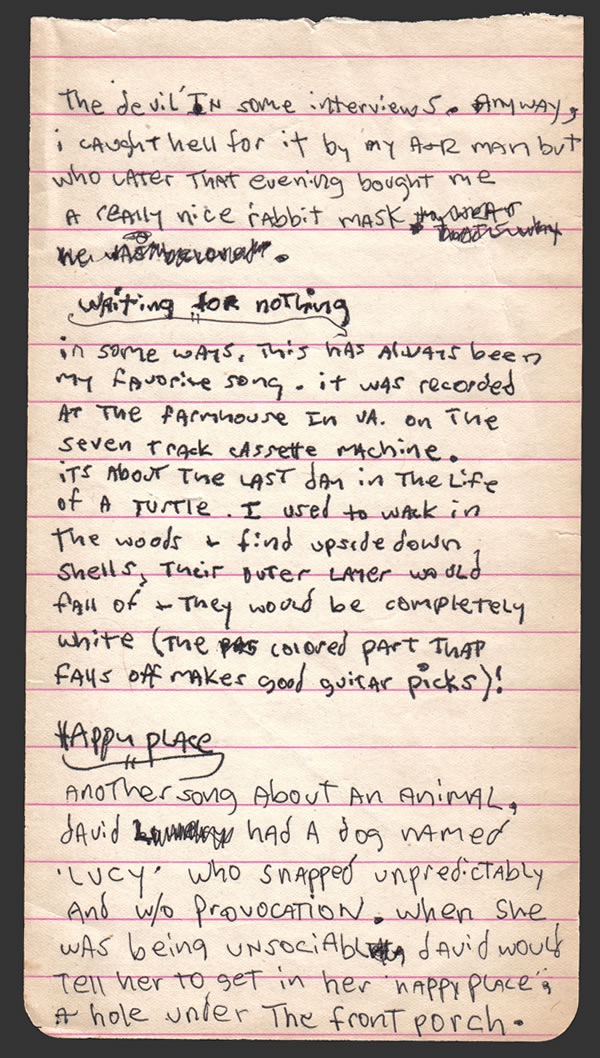 The devil' IN some interviews. Anyway,
i caught hell for it by my A+R man but
who later that evening bought me
A really nice rabbit mask
Waiting for nothing
in some ways, this has always been
my favorite song. it was recorded
At the farmhouse In VA. on the
seven track cassette machine.
its about the last day in the life
of a turtle. I used to walk in
the woods + find upside down
shells, their outer layer would
fall of + they would be completely
white (the colored part that
falls off makes good guitar picks)!
HAppy place
Another song About An Animal,
david had A dog named
'LUCY' who snapped unpredictably
And w/o provocation. when she
was being unsociabl david would
tell her to get in her 'happy place',
A hole under the front porch.